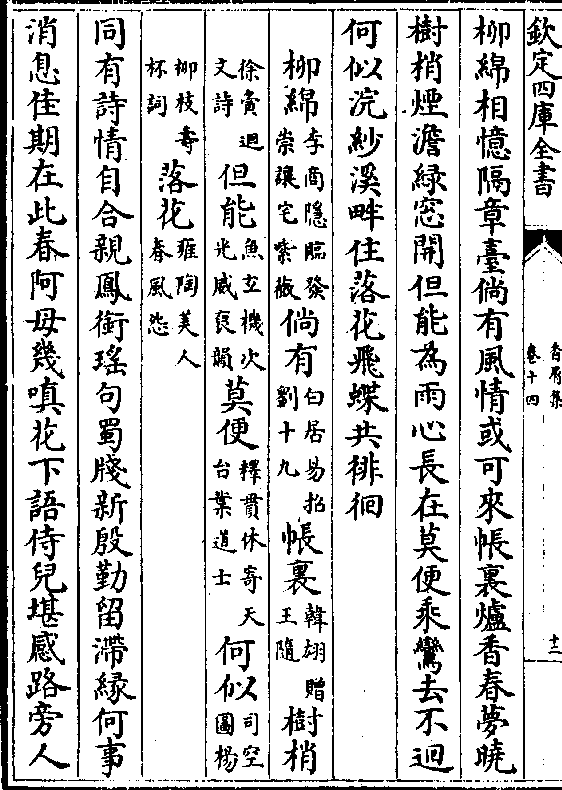 欽定四庫全書
香屑集
卷十四
十三
柳綿相憶隔章臺倘有風情或可來帳裏爐香春夢曉
樹梢煙澹綠窓開但能為雨心長在莫便乘鸞去不迴
何似浣紗溪畔住落花飛蝶共徘徊
柳綿李商隱臨發崇讓宅紫薇倘有白居易招劉十九帳裏韓翃贈王隨樹梢
徐夤迴文詩但能魚玄機次光威裒韻莫便釋貫休寄天台葉道士何似司空圖楊
柳枝壽杯詞落花雍陶美人春風怨
同有詩情自合親鳳銜瑤句蜀牋新殷勤留滯緣何事
消息佳期在此春阿母幾嗔花下語侍兒堪感路旁人